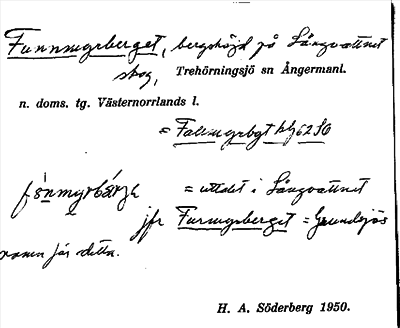 Funnmyrberget, bergshöjd på Långvattnet
skog, Trehörningsjö sn Ångermanl.
n. doms. tg. Västernorrlands l.
= Fallmyrbgt hbl 62 SO
= uttalet i Långvattnet
jfr Furmyrberget = Grundsjös
namn för detta.
H. A. Söderberg 1950.